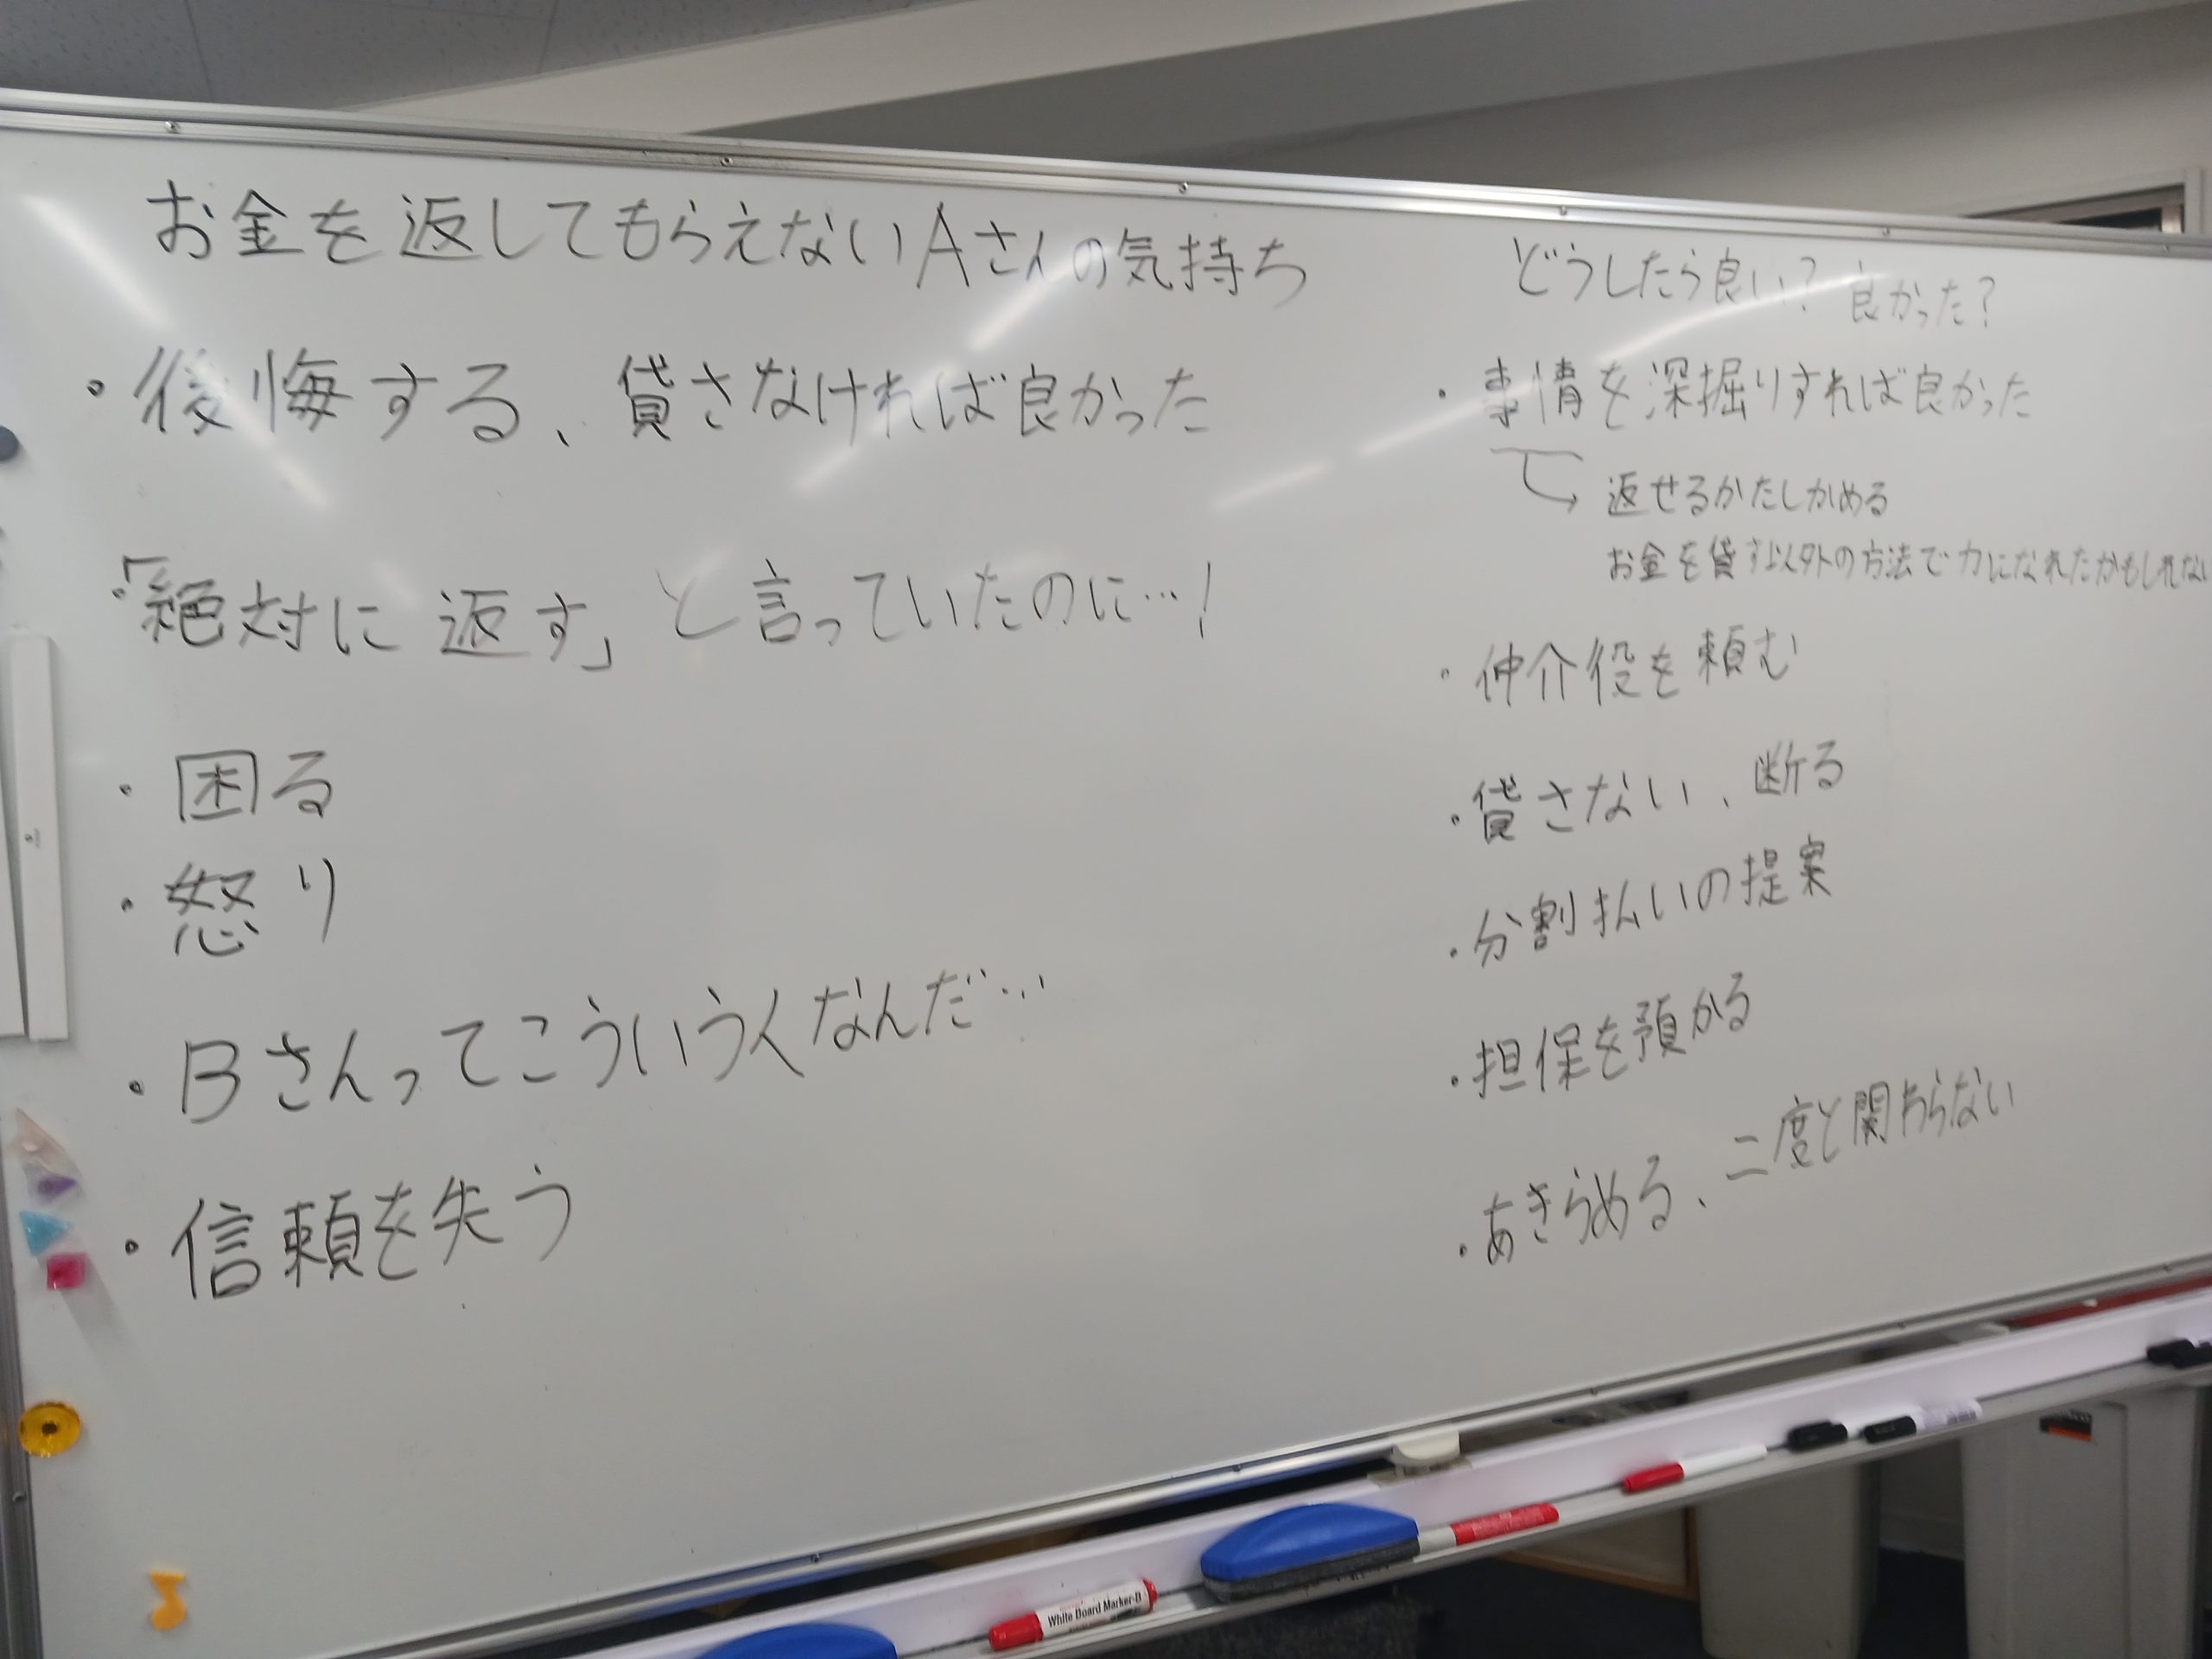 お金を返してもらえないAさんの気持ち
・後悔する、貸さなければ良かった
・「絶対に返す」と言っていたのに…!
・困る
・怒り
・Bさんってこういう人なんだ…
・信頼を失う
どうしたら良い? 良かった?
・事情を深掘りすれば良かった
返せるかたしかめる
お金を貸す以外の方法で力になれたかもしれない
・仲介役を頼む
・貸さない、断る
・分割払いの提案
・担保を預かる
・あきらめる、二度と関わらない
White Board Marker-B